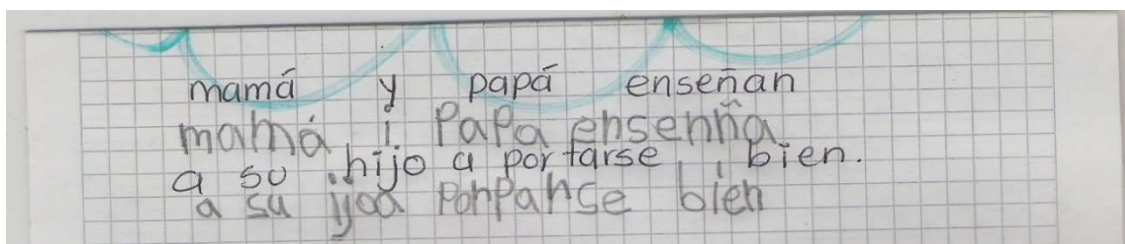 mamá y papá enseñan
mamá i PaPa ensenña
a su hijo a portarse bien.
a su ijoa PorParse bien